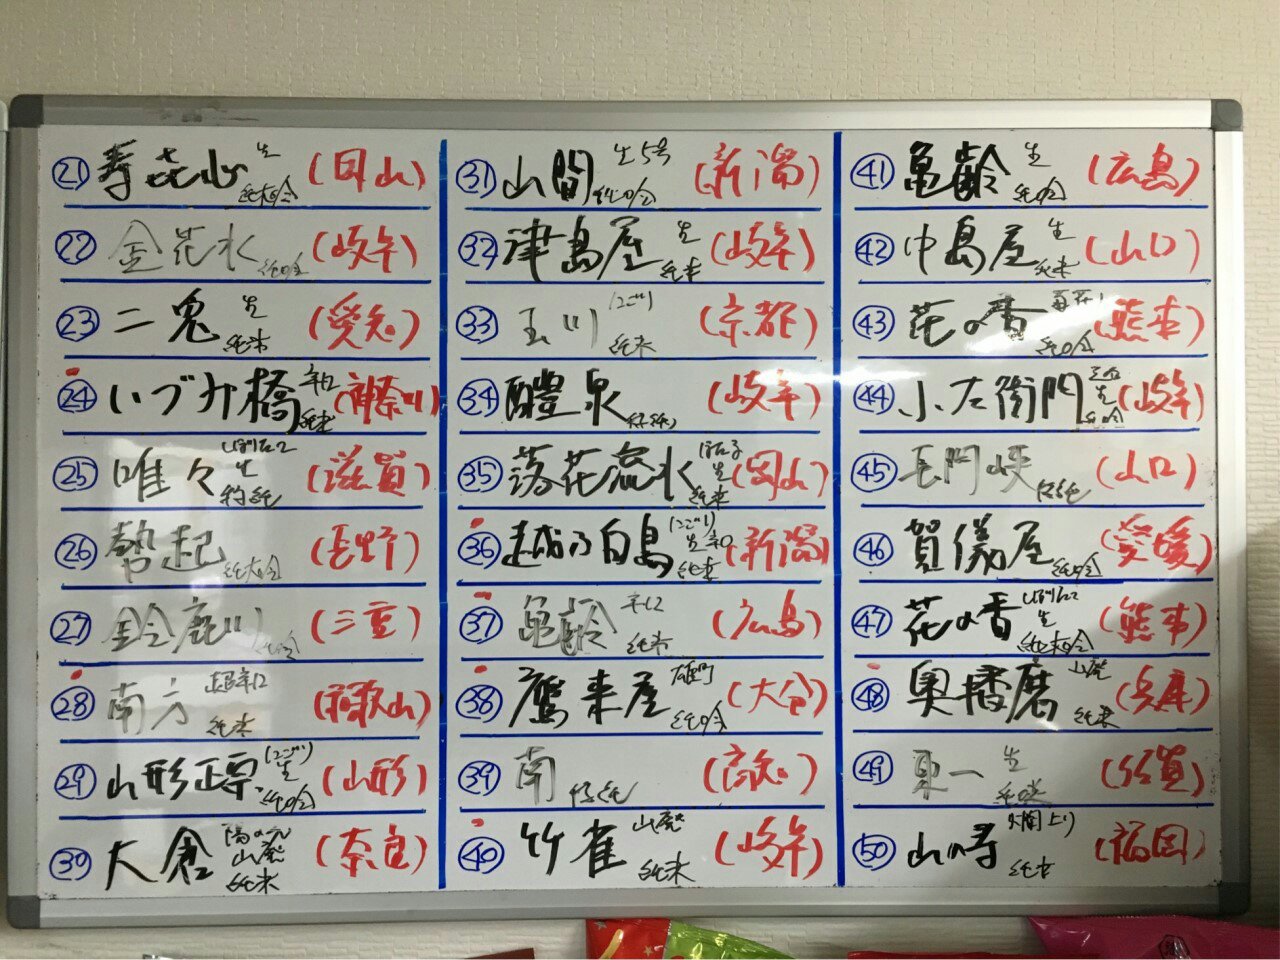 ㉑ 寿喜心 生 純大吟 (岡山)
㉒ 金花水 純吟 (岐阜)
㉓ 二兎 生 純米 (愛知)
㉔ いづみ橋 辛口 純米 (神奈川)
㉕ 唯々 しぼりたて 生 特純 (滋賀)
㉖ 勢起 純大吟 (長野)
㉗ 鈴鹿川 純吟 (三重)
㉘ 南方 超辛口 純米 (和歌山)
㉙ 山形正宗 (にごり) 生 純吟 (山形)
㉚ 大倉 陽の光 山廃 純米 (奈良)
㉛ 山間 生 5号 純吟 (新潟)
㉜ 津島屋 生 純米 (岐阜)
㉝ 玉川 (にごり) 純米 (京都)
㉞ 醴泉 特純 (岐阜)
㉟ 落花流水 生 純米 (岡山)
㊱ 越乃白鳥 (にごり) 生 辛口 純米 (新潟)
㊲ 亀齢 辛口 純米 (広島)
㊳ 鷹来屋 雄町 純吟 (大分)
㊴ 南 特純 (高知)
㊵ 竹雀 山廃 純米 (岐阜)
㊶ 亀齢 生 純吟 (広島)
㊷ 中島屋 生 純米 (山口)
㊸ 花の香 純吟 (熊本)
㊹ 小左衛門 生 純吟 (岐阜)
㊺ 長門峡 特純 (山口)
㊻ 賀儀屋 純吟 (愛媛)
㊼ 花の香 しぼりたて 生 純大吟 (熊本)
㊽ 奥播磨 山廃 純米 (兵庫)
㊾ 東一 生 (佐賀)
㊿ 山の寿 純米 (福岡)